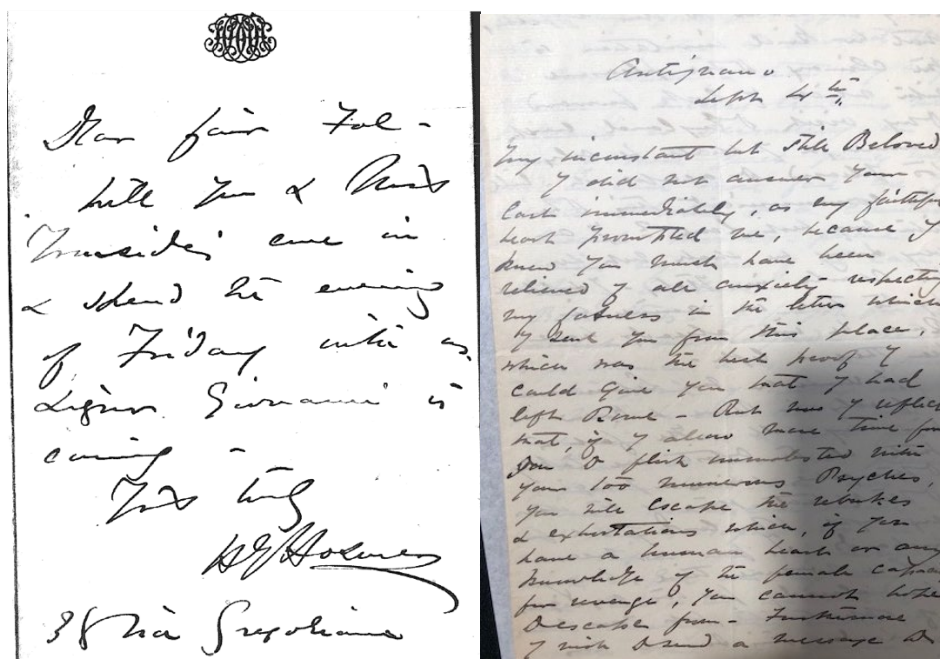 Dear fair
will you & Miss
come in
& spend the evening
of Friday with us.
Signor Giovanni is
coming -
Yrs truly
38 Via Gregoriana
Antignano
Sept 4th.
My inconstant but still Beloved
I did not answer your
immediately, as my faithful
heart prompted me, because I
knew you must have been
relieved of all anxiety respecting
my in the letter which
I sent you from this place,
which was the best proof I
could give you that I had
left Rome - But now I reflect
that, if I allow more time for
you to flirt unmolested with
your too numerous Psyches,
you will escape the rebukes
& exhortations which, if you
have a human heart or any
knowledge of the female
for revenge, you cannot hope
to escape from - Furthermore
I wish to send a message to